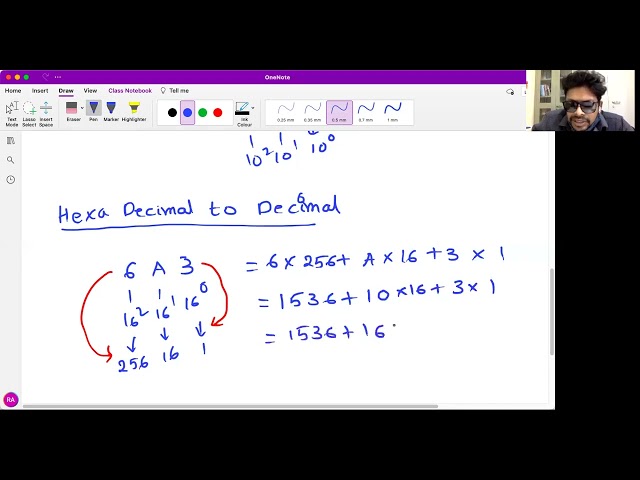 OneNote
Home Insert Draw View Class Notebook Tell me
Text Mode Lasso Select Insert Space Eraser Pen Marker Highlighter Ink Color 0.25 mm 0.35 mm 0.5 mm 0.7 mm 1 mm
10² 10¹ 10⁰
Hexa Decimal to Decimal
6 A 3 = 6 × 256 + A × 16 + 3 × 1
16² 16¹ 16⁰ = 1536 + 10 × 16 + 3 × 1
256 16 1 = 1536 + 16
RA